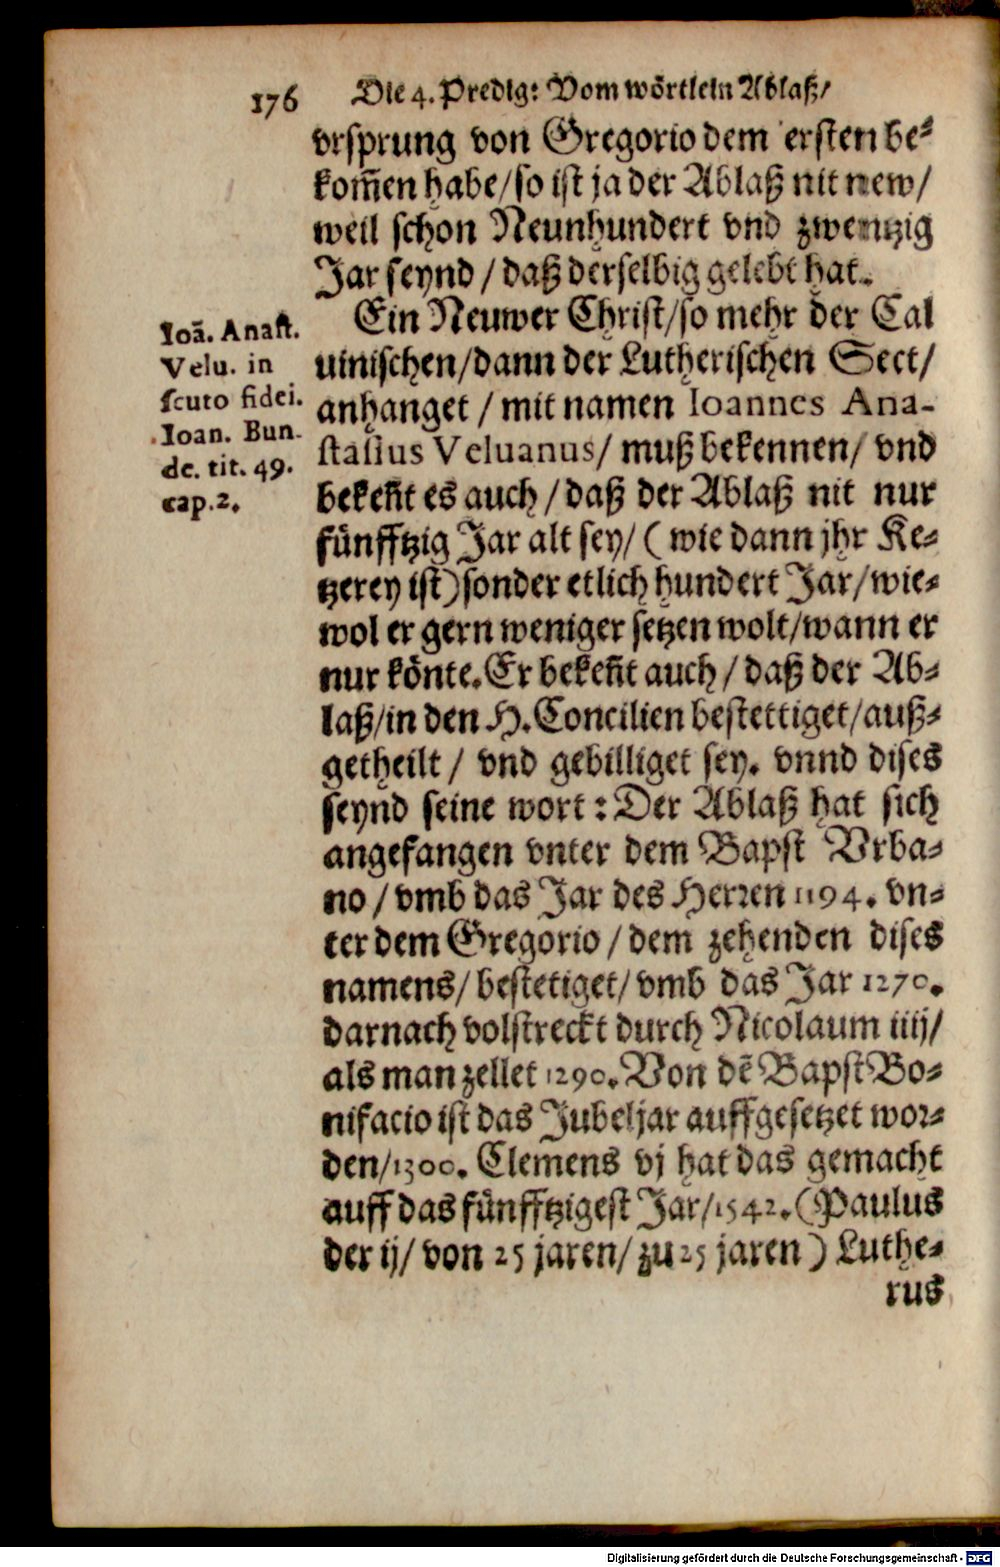 176 Die 4. Predig: Vom wörtlein Ablaß/
vrsprung von Gregorio dem ersten be-
kom̃en habe/so ist ja der Ablaß nit new/
weil schon Neunhundert vnd zwentzig
Jar seynd / daß derselbig gelebt hat.
Ein Neuwer Christ/so mehr der Cal
uinischen/dann der Lutherischen Sect/
anhanget / mit namen Ioannes Ana-
stasius Veluanus/ muß bekennen/ vnd
bekeñt es auch / daß der Ablaß nit nur
fünfftzig Jar alt sey/ ( wie dann jhr Ke-
tzerey ist) sonder etlich hundert Jar/wie-
wol er gern weniger setzen wolt/wann er
nur könte. Er bekeñt auch / daß der Ab-
laß/in den H. Concilien bestettiget/auß-
getheilt / vnd gebilliget sey. vnnd dises
seynd seine wort : Der Ablaß hat sich
angefangen vnter dem Bapst Vrba-
no / vmb das Jar des Herren 1194. vn-
ter dem Gregorio / dem zehenden dises
namens/ bestetiget/ vmb das Jar 1270.
darnach volstreckt durch Nicolaum iiij/
als man zellet 1290. Von dẽ Bapst Bo-
nifacio ist das Jubeljar auffgesetzet wor-
den/1300. Clemens vj hat das gemacht
auff das fünfftzigest Jar/1542. (Paulus
der ij/ von 25 jaren/ zu 25 jaren ) Luthe-
rus
Ioã. Anast.
Velu. in
scuto fidei.
Ioan. Bun-
de. tit. 49.
cap. 2.
Digitalisierung gefördert durch die Deutsche Forschungsgemeinschaft - DFG